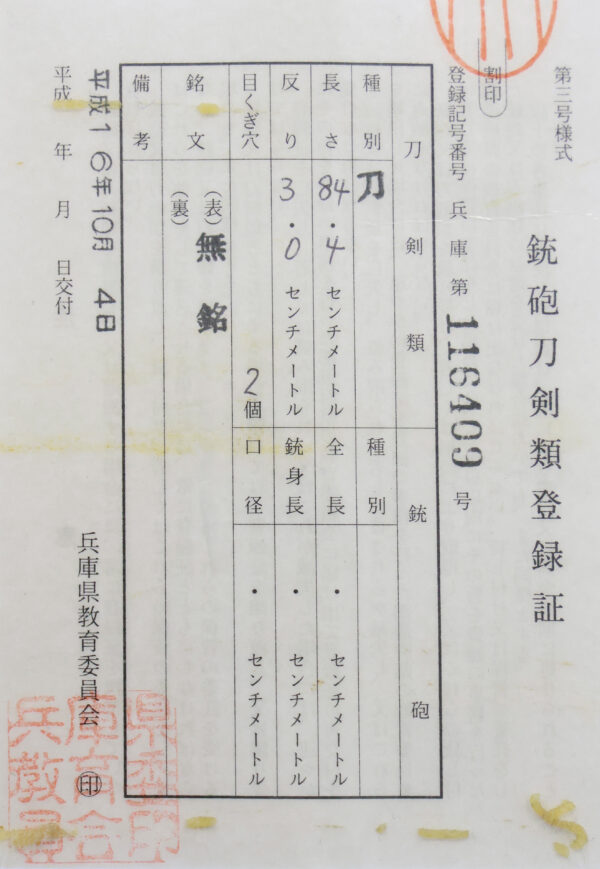 第三号様式
銃砲刀剣類登録証
割印
登録記号番号 兵庫第 116409 号
刀剣類
種別 刀
長さ 84.4 センチメートル
反り 3.0 センチメートル
目くぎ穴 2個
銘文 (表) 無銘
(裏)
備考
銃砲
種別
全長 ・ センチメートル
銃身長 ・ センチメートル
口径 ・ センチメートル
平成16年10月 4日
平成 年 月 日交付
兵庫県教育委員会 印
県委印
庫育会
兵教員